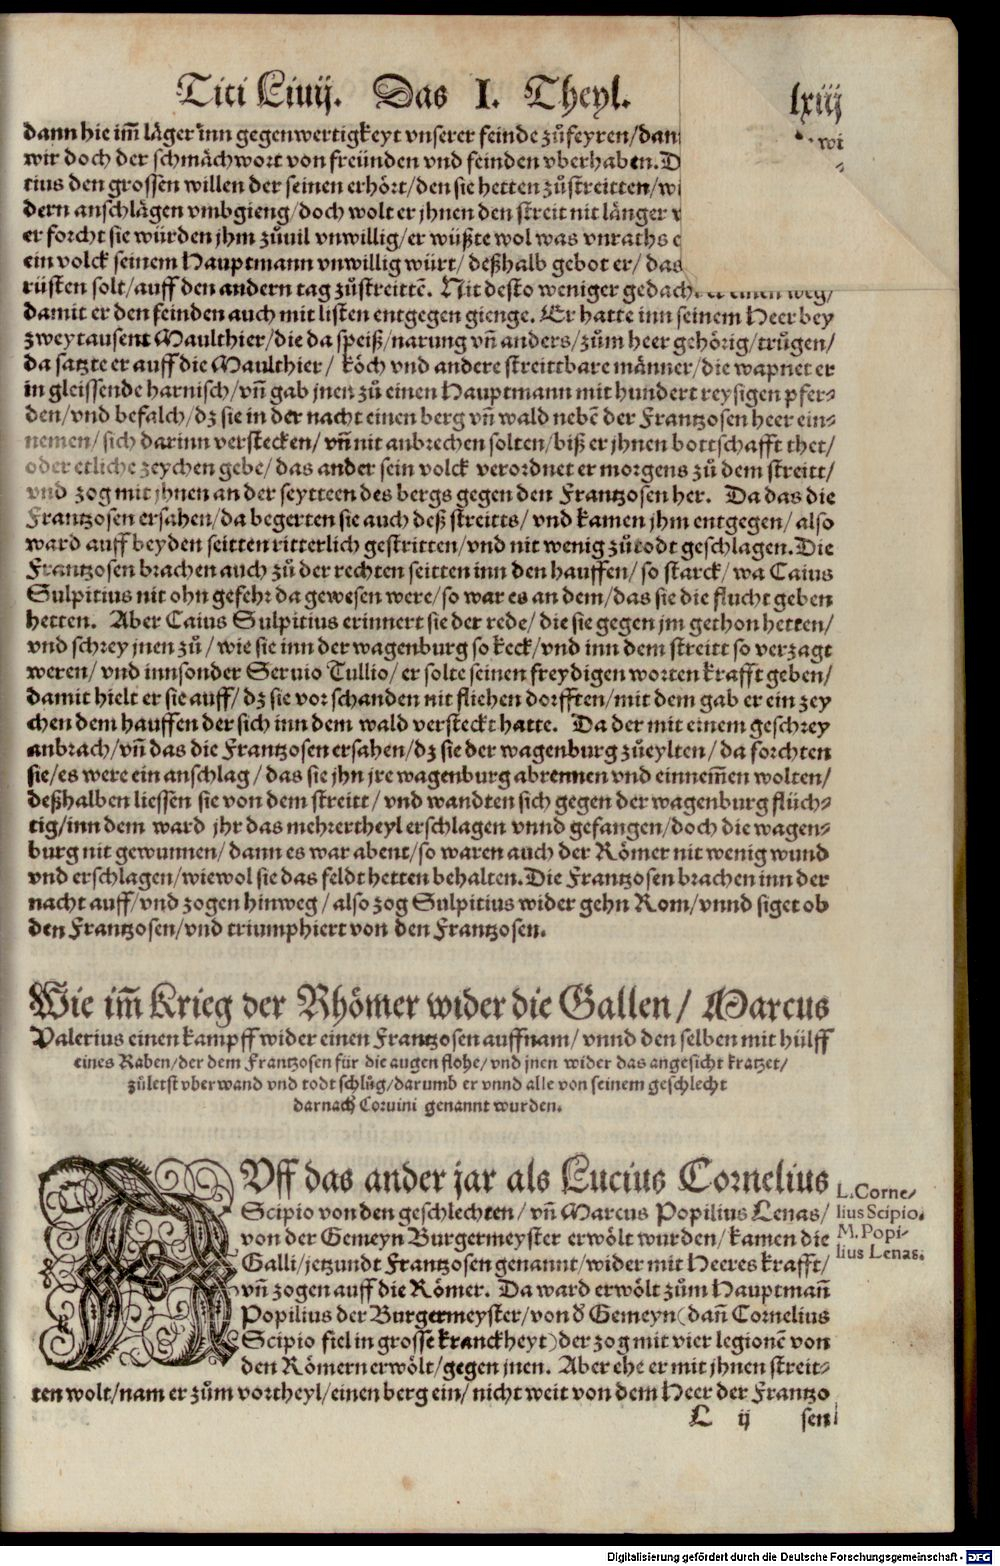 Titi Liuij. Das I. Theyl. lxiij
dann hie im̃ läger inn gegenwertigkeyt vnserer feinde zůfeyren/dan
wir doch der schmächwort von freünden vnd feinden vberhaben. D wi
tius den grossen willen der seinen erhört/den sie hetten zůstreitten/wi
dern anschlägen vmbgieng/doch wolt er jhnen den streit nit länger
er forcht sie würden jhm zůuil vnwillig/er wüßte wol was vnraths e
ein volck seinem Hauptmann vnwillig würt/deßhalb gebot er/das
rüsten solt/auff den andern tag zůstreittẽ. Nit desto weniger gedacht er einen weg/
damit er den feinden auch mit listen entgegen gienge. Er hatte inn seinem Heer bey
zwey tausent Maulthier/die da speiß/narung vñ anders/zům heer gehörig/trůgen/
da satzte er auff die Maulthier/ köch vnd andere streittbare männer/die wapnet er
in gleissende harnisch/vñ gab jnen zů einen Hauptmann mit hundert reysigen pfer-
den/vnd befalch/dz sie in der nacht einen berg vñ wald nebẽ der Frantzosen heer ein-
nemen/sich darinn verstecken/vñ nit anbrechen solten/biß er jhnen bottschafft thet/
oder etliche zeychen gebe/das ander sein volck verordnet er morgens zů dem streitt/
vnd zog mit jhnen an der seytteen des bergs gegen den Frantzosen her. Da das die
Frantzosen ersahen/da begerten sie auch deß streitts/vnd kamen jhm entgegen/also
ward auff beyden seitten ritterlich gestritten/vnd nit wenig zů todt geschlagen. Die
Frantzosen brachen auch zů der rechten seitten inn den hauffen/so starck/wa Caius
Sulpitius nit ohn gefehr da gewesen were/so war es an dem/das sie die flucht geben
hetten. Aber Caius Sulpitius erinnert sie der rede/die sie gegen jm gethon hetten/
vnd schrey jnen zů/wie sie inn der wagenburg so keck/vnd inn dem streitt so verzagt
weren/vnd innsonder Seruio Tullio/er solte seinen freydigen worten krafft geben/
damit hielt er sie auff/dz sie vor schanden nit fliehen dorfften/mit dem gab er ein zey
chen dem hauffen der sich inn dem wald versteckt hatte. Da der mit einem geschrey
anbrach/vñ das die Frantzosen ersahen/dz sie der wagenburg zůeylten/da forchten
sie/es were ein anschlag/das sie jhn jre wagenburg abrennen vnd einnem̃en wolten/
deßhalben liessen sie von dem streitt/vnd wandten sich gegen der wagenburg flüch-
tig/inn dem ward jhr das mehrertheyl erschlagen vnnd gefangen/doch die wagen-
burg nit gewunnen/dann es war abent/so waren auch der Römer nit wenig wund
vnd erschlagen/wiewol sie das feldt hetten behalten. Die Frantzosen brachen inn der
nacht auff/vnd zogen hinweg/also zog Sulpitius wider gehn Rom/vnnd siget ob
den Frantzosen/vnd triumphiert von den Frantzosen.
Wie im̃ Krieg der Rhömer wider die Gallen/ Marcus
Valerius einen kampff wider einen Frantzosen auffnam/vnnd den selben mit hülff
eines Raben/der dem Frantzosen für die augen flohe/vnd jnen wider das angesicht kratzet/
zůletst vberwand vnd todt schlůg/darumb er vnnd alle von seinem geschlecht
darnach Coruini genannt wurden.
AVff das ander jar als Lucius Cornelius
Scipio von den geschlechten/vñ Marcus Popilius Lenas/
von der Gemeyn Burgermeyster erwölt wurden/kamen die
Galli/jetzundt Frantzosen genannt/wider mit Heeres krafft/
vñ zogen auff die Römer. Da ward erwölt zům Hauptmañ
Popilius der Burgermeyster/von d' Gemeyn (dañ Cornelius
Scipio fiel in grosse kranckheyt) der zog mit vier legionẽ von
den Römern erwölt/gegen jnen. Aber ehe er mit jhnen streit-
ten wolt/nam er zům vortheyl/einen berg ein/nicht weit von dem Heer der Frantzo
L ij sen
L. Corne/
lius Scipio.
M. Popi-
lius Lenas.
Digitalisierung gefördert durch die Deutsche Forschungsgemeinschaft - DFG